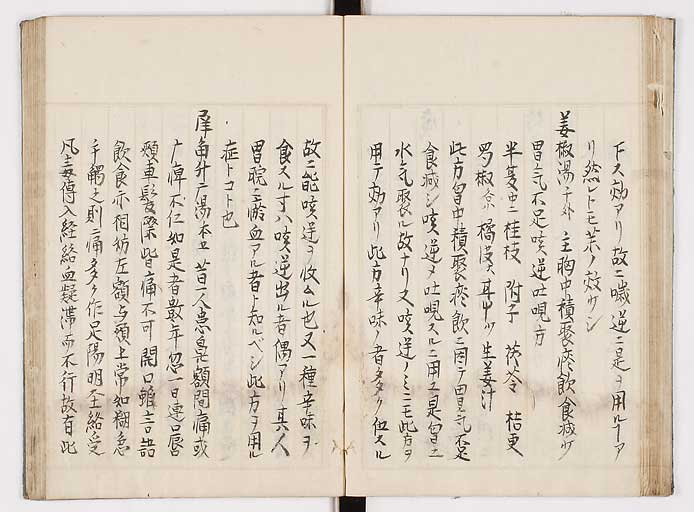 下ス効アリ故ニ噦逆ニ是ヲ用ルヿア
リ然レトモ茶ノ效サシ
姜椒湯 千外 主胸中積聚痰飲飲食減少
胃気不足咳逆吐 方
半夏 桂枝 附子 茯苓 桔更
蜀椒 橘皮 生姜汁
此方胷中積聚痰飲ニ因テ胃気不足
食減シ咳逆 吐 スルニ用ユ是胷ニ
水気聚ル故ナリ又咳逆ノミニモ此方ヲ
用テ効アリ此方辛味ノ者多ク伍スル
故ニ能咳逆ヲ收ムル也又一種辛味ヲ
食スル寸ハ咳逆出ル者偶アリ其人
胃脘ニ瘀血アル者ト知ルベシ此方ヲ用ル
症トコト也
犀角升广湯 本 昔一人患鼻額間痛或
广痺不仁如是者数年忽一日連口唇
頬車髪際皆痛不可開口 言語
飲食亦相妨左額与頬上常如糊急
手觸之則痛多ク作足陽明 絡受
凡毒傳入経絡血凝滞而不行故有此